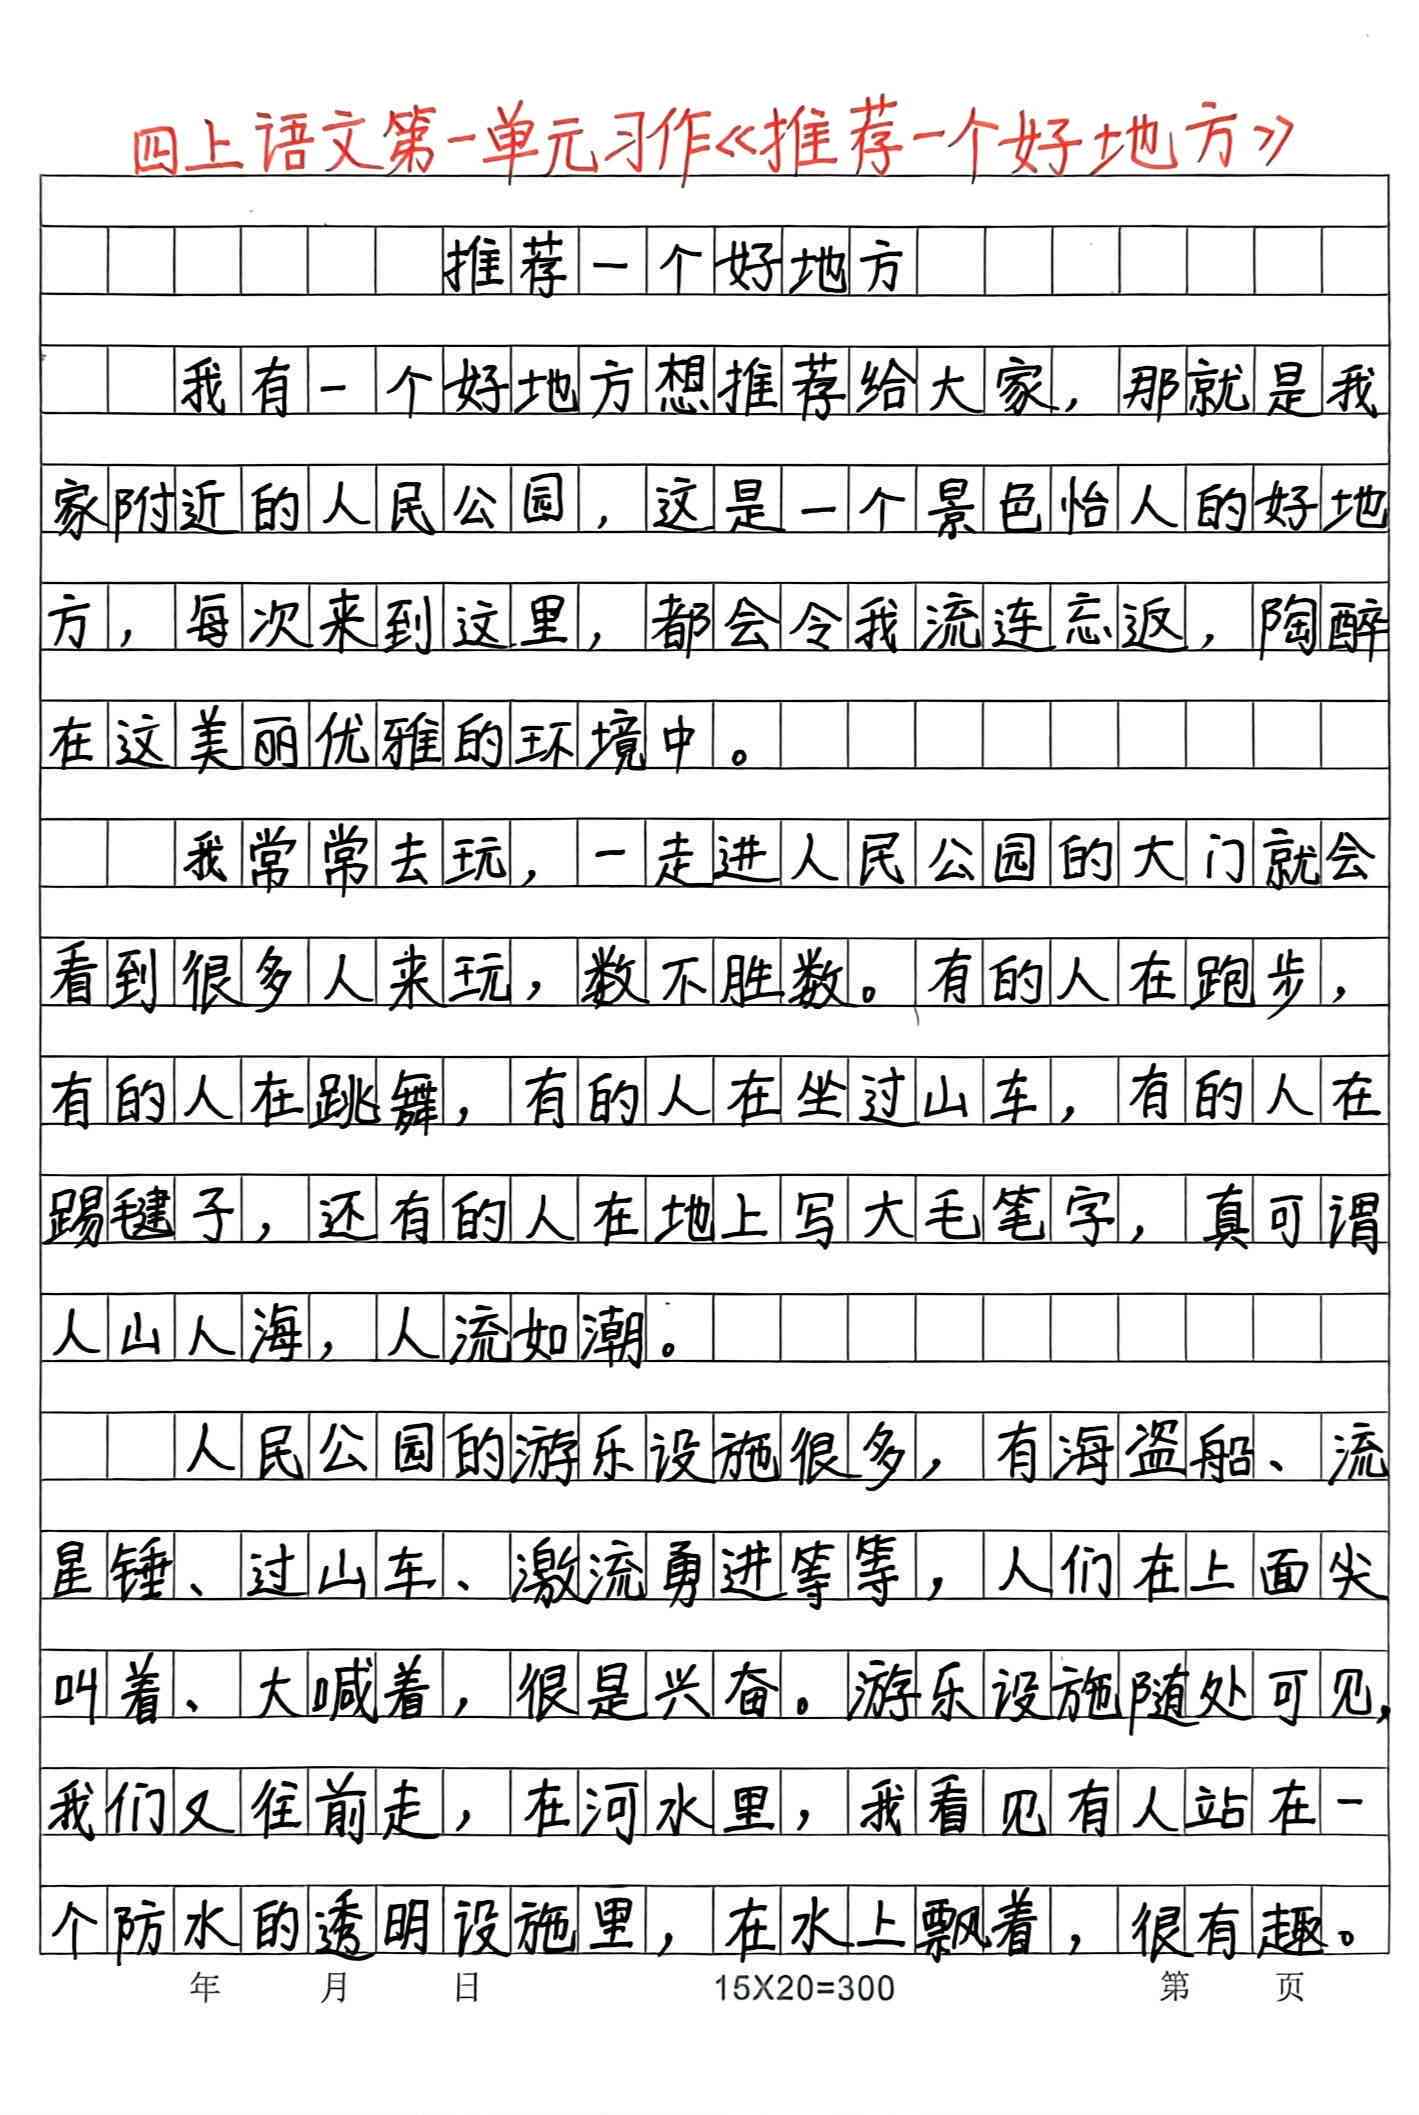 四上语文第一单元习作《推荐一个好地方》
推荐一个好地方
我有一个好地方想推荐给大家，那就是我
家附近的人民公园，这是一个景色怡人的好地
方，每次来到这里，都会令我流连忘返，陶醉
在这美丽优雅的环境中。
我常常去玩，一走进人民公园的大门就会
看到很多人来玩，数不胜数。有的人在跑步，
有的人在跳舞，有的人在坐过山车，有的人在
踢毽子，还有的人在地上写大毛笔字，真可谓
人山人海，人流如潮。
人民公园的游乐设施很多，有海盗船、流
星锤、过山车、激流勇进等等，人们在上面尖
叫着、大喊着，很是兴奋。游乐设施随处可见，
我们又往前走，在河水里，我看见有人站在一
个防水的透明设施里，在水上飘着，很有趣。
年 月 日 15X20=300 第 页